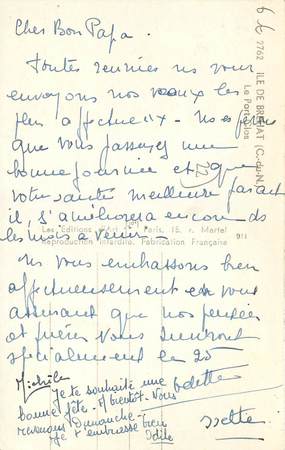 Cher Bon Papa.
Toutes réunies ns vous
envoyons nos vœux les
plus affectueux - Ns espérons
que vous passerez une
bonne journée et que
votre santé meilleure parait
il, s'améliorera encore ds
les mois à venir.
Ns vous embrassons bien
affectueusement en vous
assurant que nos pensées
et prières vous suivront
spécialement le 25
Odette
Michèle
Je te souhaite une
bonne fête. A bientôt. Nous
revenons Dimanche. bien
Je t'embrasse
Odile
Yvette
22
2762 ILE DE BREHAT (C.-du-N.)
Le Port-Clos
Les Editions d'Art Paris, 15, r. Martel
Reproduction Interdite. Fabrication Française
911